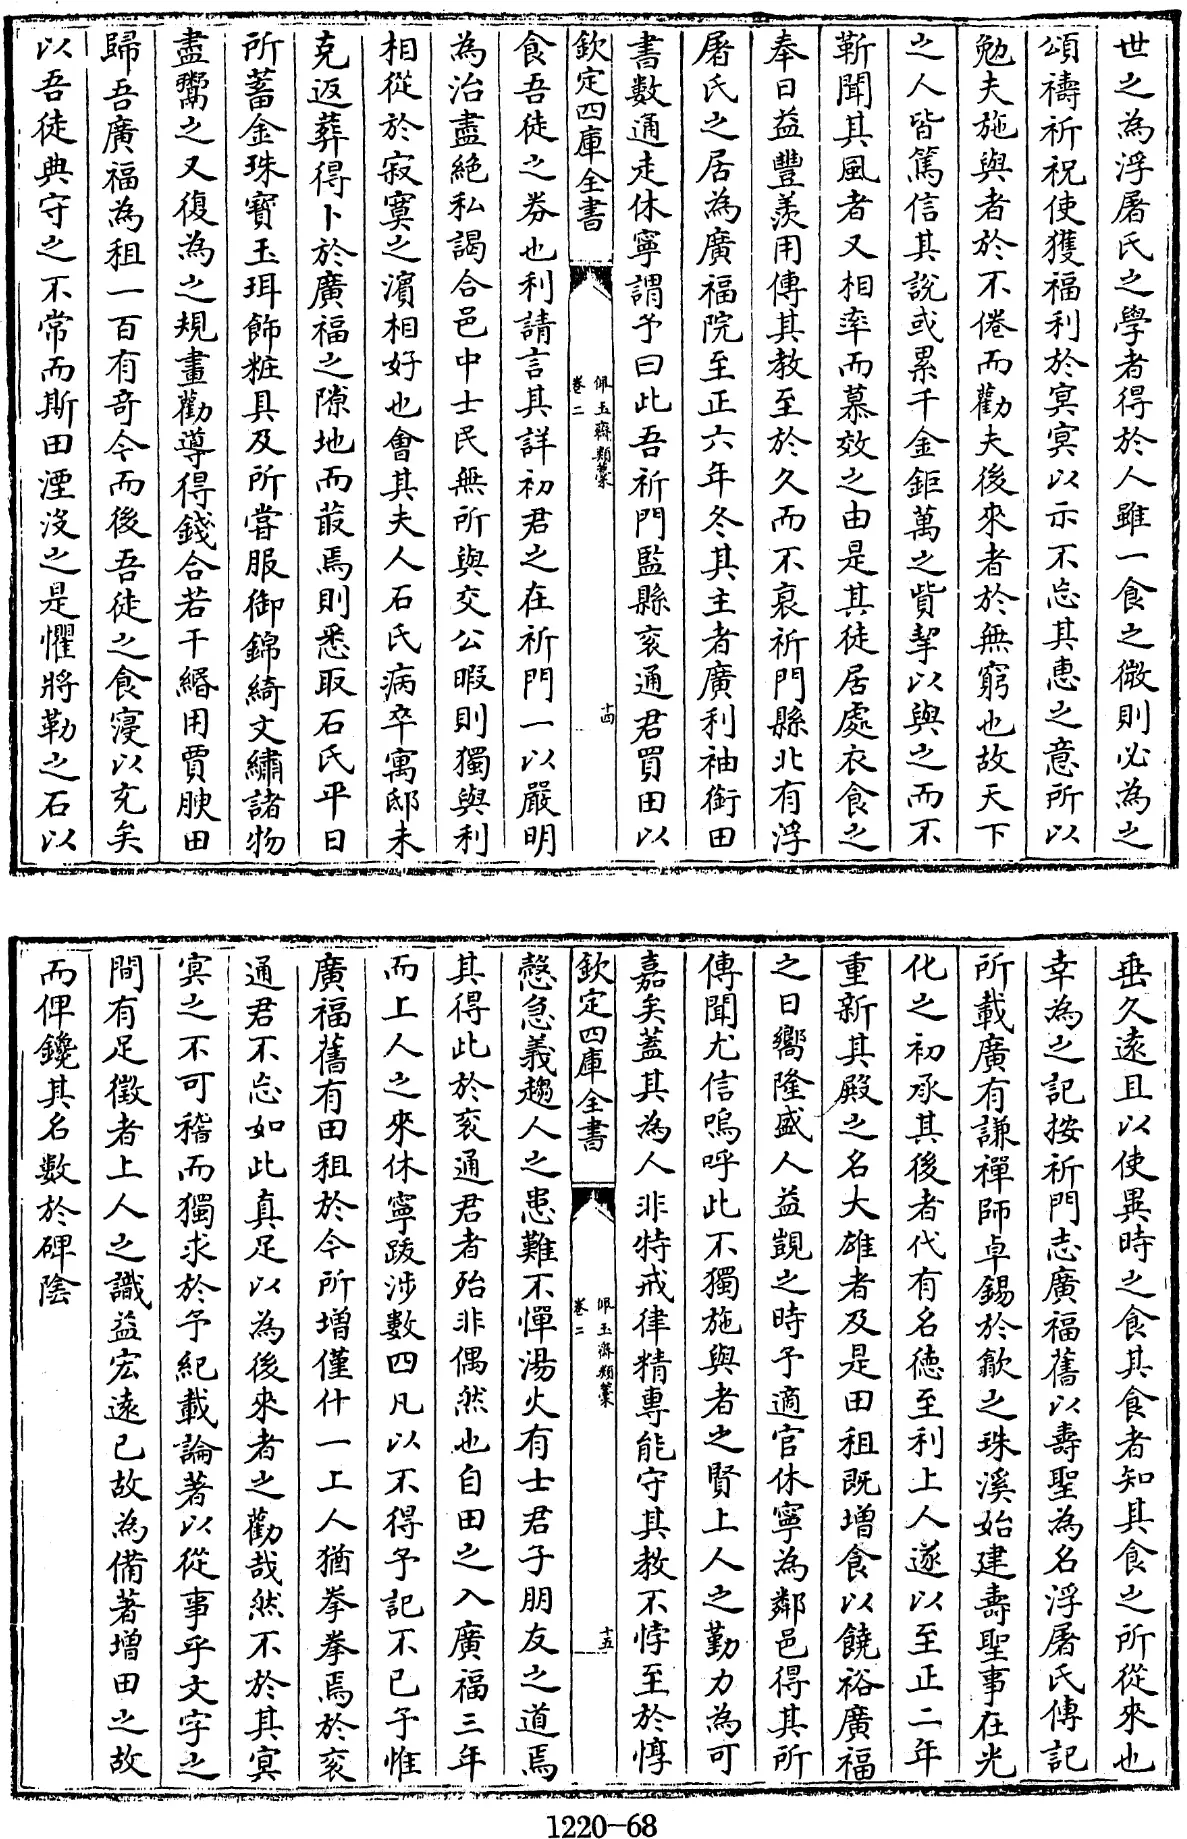 世之為浮屠氏之學者得於人雖一食之微則必為之
頌禱祈祝使獲福利於冥冥以示不忘其惠之意所以
勉夫施與者於不倦而勸夫後來者於無窮也故天下
之人皆篤信其說或累千金鉅萬之貲挈以與之而不
靳聞其風者又相率而慕效之由是其徒居處衣食之
奉日益豐羨用傳其教至於久而不衰祈門縣北有浮
屠氏之居為廣福院至正六年冬其主者廣利袖銜田
書數通走休寧謂予曰此吾祈門監縣衮通君買田以
欽定四庫全書
佩玉齋類藁
卷二
十四
食吾徒之券也利請言其詳初君之在祈門一以嚴明
為治盡絕私謁合邑中士民無所與交公暇則獨與利
相從於寂寞之濱相好也會其夫人石氏病卒寓邸未
克返葬得卜於廣福之隙地而菆焉則悉取石氏平日
所蓄金珠寶玉珥飾粧具及所嘗服御錦綺文繡諸物
盡鬻之又復為之規畫勸導得錢合若干緡用賈腴田
歸吾廣福為租一百有奇今而後吾徒之食寖以充矣
以吾徒典守之不常而斯田湮沒之是懼將勒之石以
垂久遠且以使異時之食其食者知其食之所從來也
幸為之記按祈門志廣福舊以壽聖為名浮屠氏傳記
所載廣有謙禪師卓錫於歙之珠溪始建壽聖事在光
化之初承其後者代有名德至利上人遂以至正二年
重新其殿之名大雄者及是田租既增食以饒裕廣福
之日嚮隆盛人益覬之時予適官休寧為鄰邑得其所
傳聞尤信嗚呼此不獨施與者之賢上人之勤力為可
嘉矣蓋其為人非特戒律精專能守其教不悖至於惇
欽定四庫全書
佩玉齋類藁
卷二
十五
慤急義趨人之患難不憚湯火有士君子朋友之道焉
其得此於衮通君者殆非偶然也自田之入廣福三年
而上人之來休寧跋涉數四凡以不得予記不已予惟
廣福舊有田租於今所增僅什一上人猶拳拳焉於衮
通君不忘如此真足以為後來者之勸哉然不於其冥
冥之不可稽而獨求於予紀載論著以從事乎文字之
間有足徵者上人之識益宏遠已故為備著增田之故
而俾鑱其名數於碑陰
1220-68